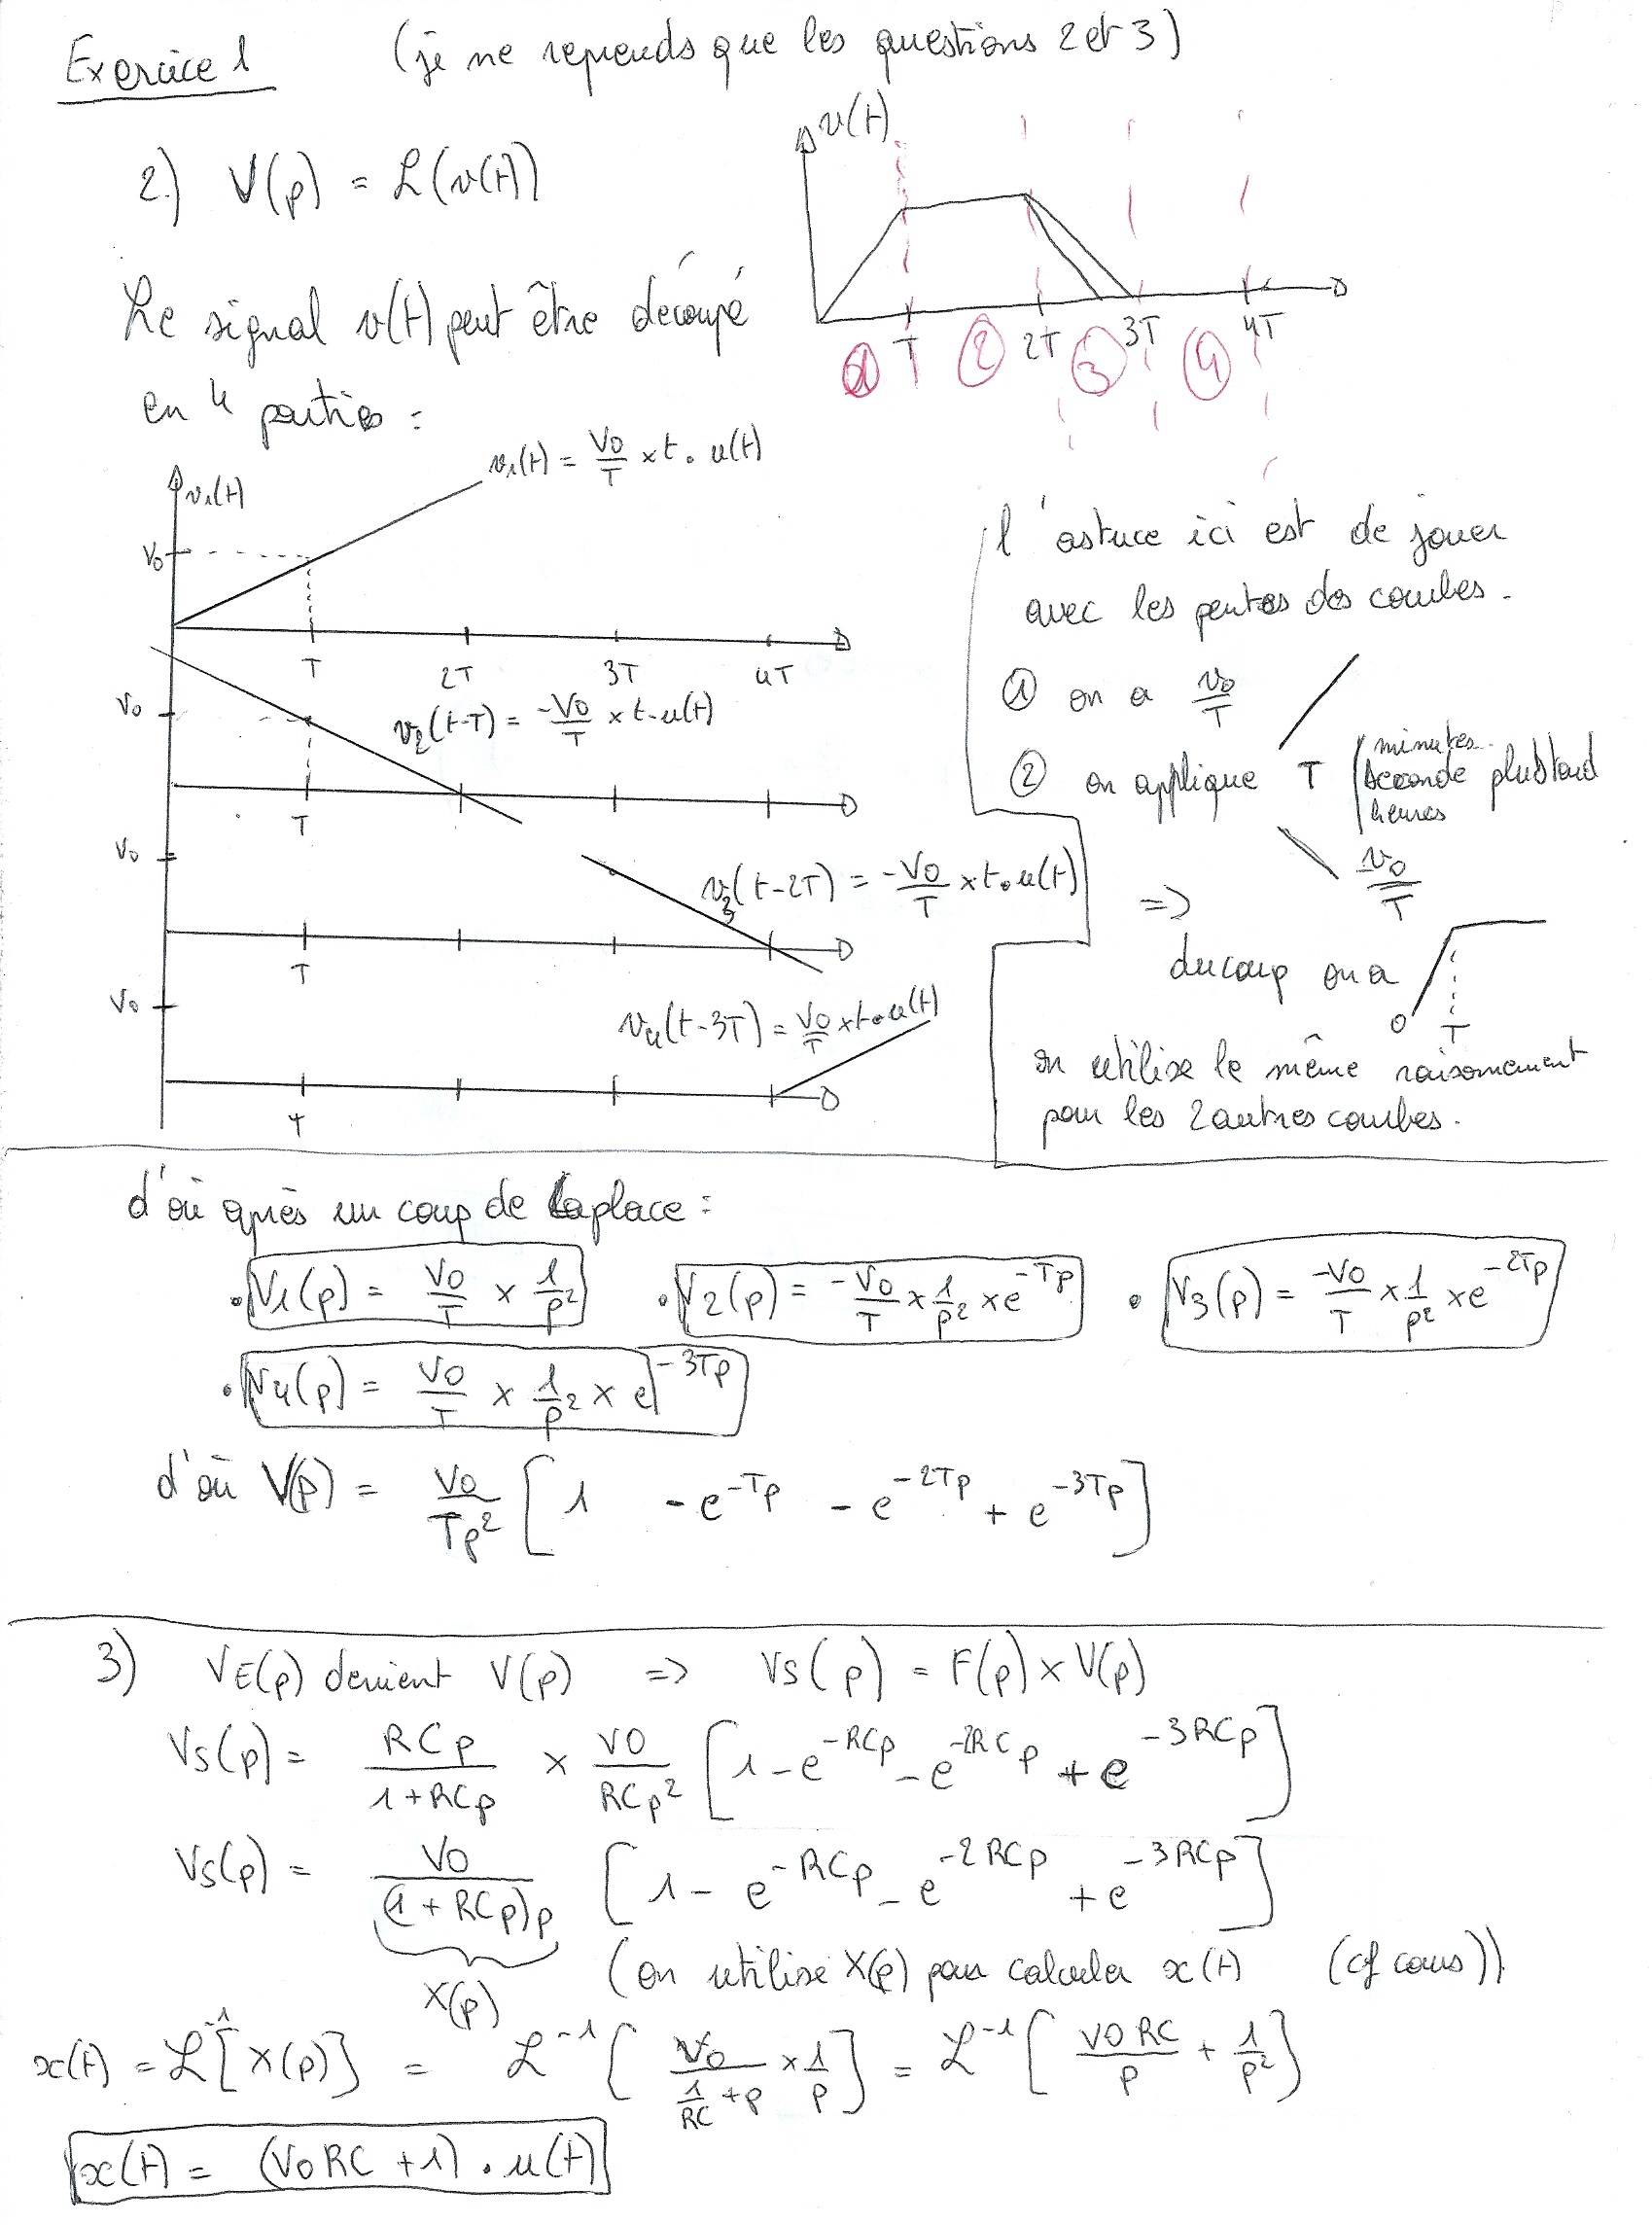 Exercice 1 (je ne reprends que les questions 2 et 3)
2.) V(p) = ℒ(v(t))
v(t)
T 2T 3T 4T
① ② ③ ④
Le signal v(t) peut être découpé
en 4 parties :
v₁(t)
v₁(t) = V0/T × t . u(t)
V0
T 2T 3T 4T
V0
v₂(t-T) = -V0/T × t . u(t)
T
V0
v₃(t-2T) = -V0/T × t . u(t)
T
V0
v₄(t-3T) = V0/T × t . u(t)
T
l'astuce ici est de jouer
avec les pentes des courbes.
① on a V0/T
② on applique T minutes seconde heures plus tard
-V0/T
=>
du coup on a
0 T
on utilise le même raisonnement
pour les 2 autres courbes.
d'où après un coup de Laplace :
. V₁(p) = V0/T × 1/p² . V₂(p) = -V0/T × 1/p² × e^(-Tp) . V₃(p) = -V0/T × 1/p² × e^(-2Tp)
. V₄(p) = V0/T × 1/p² × e^(-3Tp)
d'où V(p) = V0/Tp² [ 1 - e^(-Tp) - e^(-2Tp) + e^(-3Tp) ]
3) VE(p) devient V(p) => Vs(p) = F(p) × V(p)
Vs(p) = RCp/(1+RCp) × V0/RCp² [ 1 - e^(-RCp) - e^(-2RCp) + e^(-3RCp) ]
Vs(p) = V0/((1+RCp)p) [ 1 - e^(-RCp) - e^(-2RCp) + e^(-3RCp) ]
X(p) (on utilise X(p) pour calculer x(t) (cf cours))
x(t) = ℒ⁻¹[X(p)] = ℒ⁻¹[ V0/(1/RC + p) × 1/p ] = ℒ⁻¹[ V0RC/p + 1/p² ]
x(t) = (V0RC + 1) . u(t)